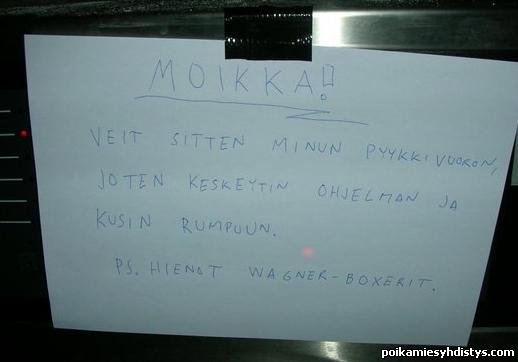 MOIKKA!
VEIT SITTEN MINUN PYYKKIVUORON,
JOTEN KESKEYTIN OHJELMAN JA
KUSIN RUMPUUN.
PS. HIENOT WAGNER-BOXERIT.
poikamiesyhdistys.com